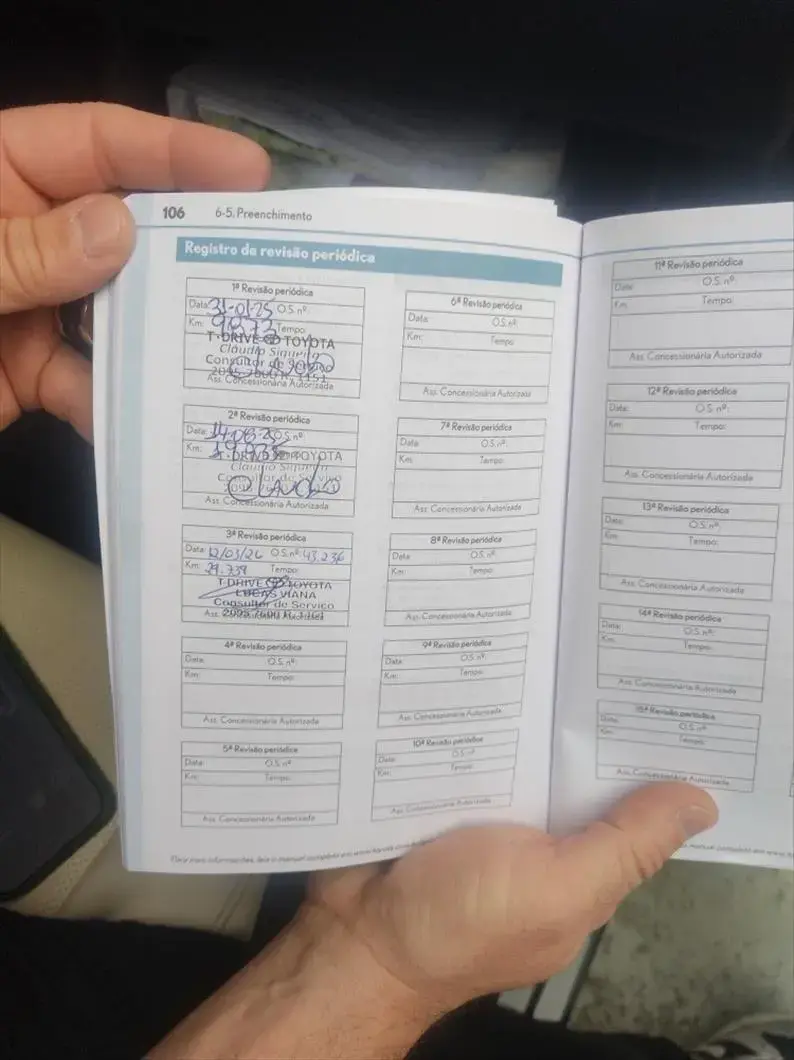 106 6-5. Preenchimento
Registro de revisão periódica
1ª Revisão periódica
Data: 31-01-25 O.S.nº:
Km: Tempo:
T-DRIVE TOYOTA
Claudio
Consultor de Serviço
Ass. Concessionária Autorizada
2ª Revisão periódica
Data: O.S.nº:
Km:
T-DRIVE TOYOTA
Claudio
Consultor de Serviço
Ass. Concessionária Autorizada
3ª Revisão periódica
Data: 12/03/26 O.S.nº: 43.236
Km: 29.739 Tempo:
T-DRIVE TOYOTA
LUCAS VIANA
Consultor de Serviço
Ass. Concessionária Autorizada
4ª Revisão periódica
Data: O.S.nº:
Km: Tempo:
Ass. Concessionária Autorizada
5ª Revisão periódica
Data: O.S.nº:
Km: Tempo:
Ass. Concessionária Autorizada
6ª Revisão periódica
Data: O.S.nº:
Km: Tempo:
Ass. Concessionária Autorizada
7ª Revisão periódica
Data: O.S.nº:
Km: Tempo:
Ass. Concessionária Autorizada
8ª Revisão periódica
Data: O.S.nº:
Km: Tempo:
Ass. Concessionária Autorizada
9ª Revisão periódica
Data: O.S.nº:
Km: Tempo:
Ass. Concessionária Autorizada
10ª Revisão periódica
Data: O.S.nº:
Km: Tempo:
Ass. Concessionária Autorizada
11ª Revisão periódica
Data: O.S.nº:
Km: Tempo:
Ass. Concessionária Autorizada
12ª Revisão periódica
Data: O.S.nº:
Km: Tempo:
Ass. Concessionária Autorizada
13ª Revisão periódica
Data: O.S.nº:
Km: Tempo:
Ass. Concessionária Autorizada
14ª Revisão periódica
Data: O.S.nº:
Km: Tempo:
Ass. Concessionária Autorizada
15ª Revisão periódica
Data: O.S.nº:
Km: Tempo:
Ass. Concessionária Autorizada
Para mais informações, leia o manual completo em
manual completo em